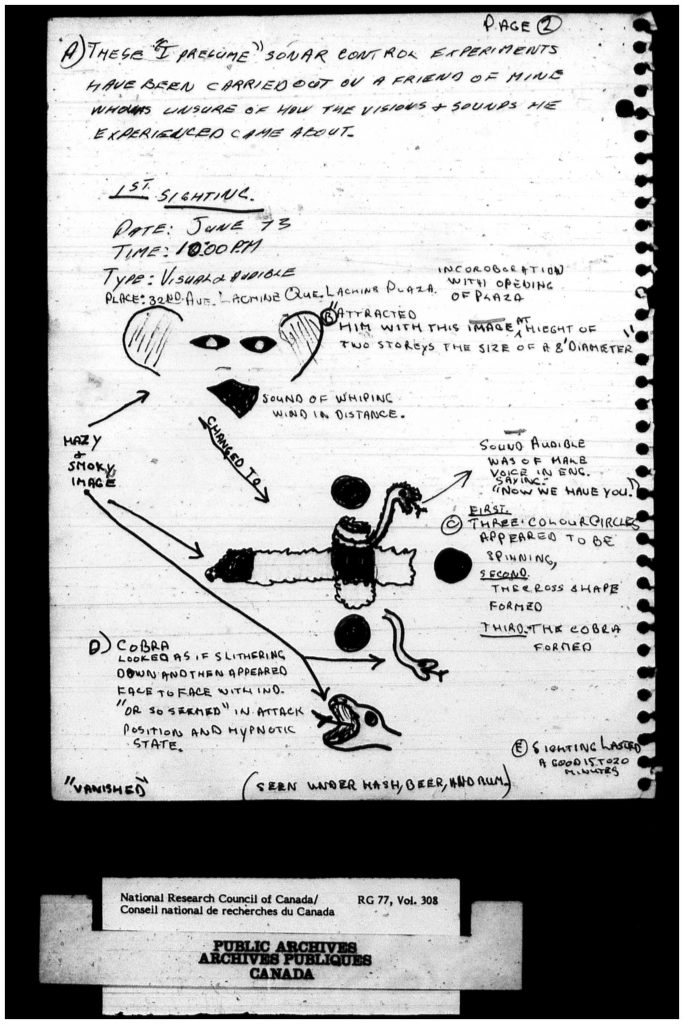 PAGE 2
A) THESE "I PRESUME" SONAR CONTROL EXPERIMENTS
HAVE BEEN CARRIED OUT ON A FRIEND OF MINE
UNSURE OF HOW THE VISIONS & SOUNDS HE
EXPERIENCED CAME ABOUT.
1ST. SIGHTING.
DATE: JUNE 73
TIME: 10:00 P.M
TYPE: VISUAL & AUDIBLE
PLACE: 32ND. AVE. LACHINE QUE. LACHINE PLAZA.
INCOROBORATION
WITH OPENING
OF PLAZA
B "ATTRACTED
HIM WITH THIS IMAGE AT HIEGHT OF
TWO STOREYS THE SIZE OF A 8' DIAMETER"
SOUND OF WHIPING
WIND IN DISTANCE.
CHANGED TO
HAZY
&
SMOKY
IMAGE
SOUND AUDIBLE
WAS OF MALE
VOICE IN ENG.
SAYING.
"NOW WE HAVE YOU."
FIRST.
C THREE COLOUR CIRCLES
APPEARED TO BE
SPINNING,
SECOND.
THE CROSS SHAPE
FORMED
THIRD. THE COBRA
FORMED
D) COBRA
LOOKED AS IF SLITHERING
DOWN AND THEN APPEARED
FACE TO FACE WITH IND.
"OR SO SEEMED" IN ATTACK
POSITION AND HYPNOTIC
STATE.
E SIGHTING LASTED
A GOOD 15 TO 20
MINUTES
"VANISHED"
(SEEN UNDER HASH, BEER, AND RUM.)
National Research Council of Canada/
Conseil national de recherches du Canada
RG 77, Vol. 308
PUBLIC ARCHIVES
ARCHIVES PUBLIQUES
CANADA